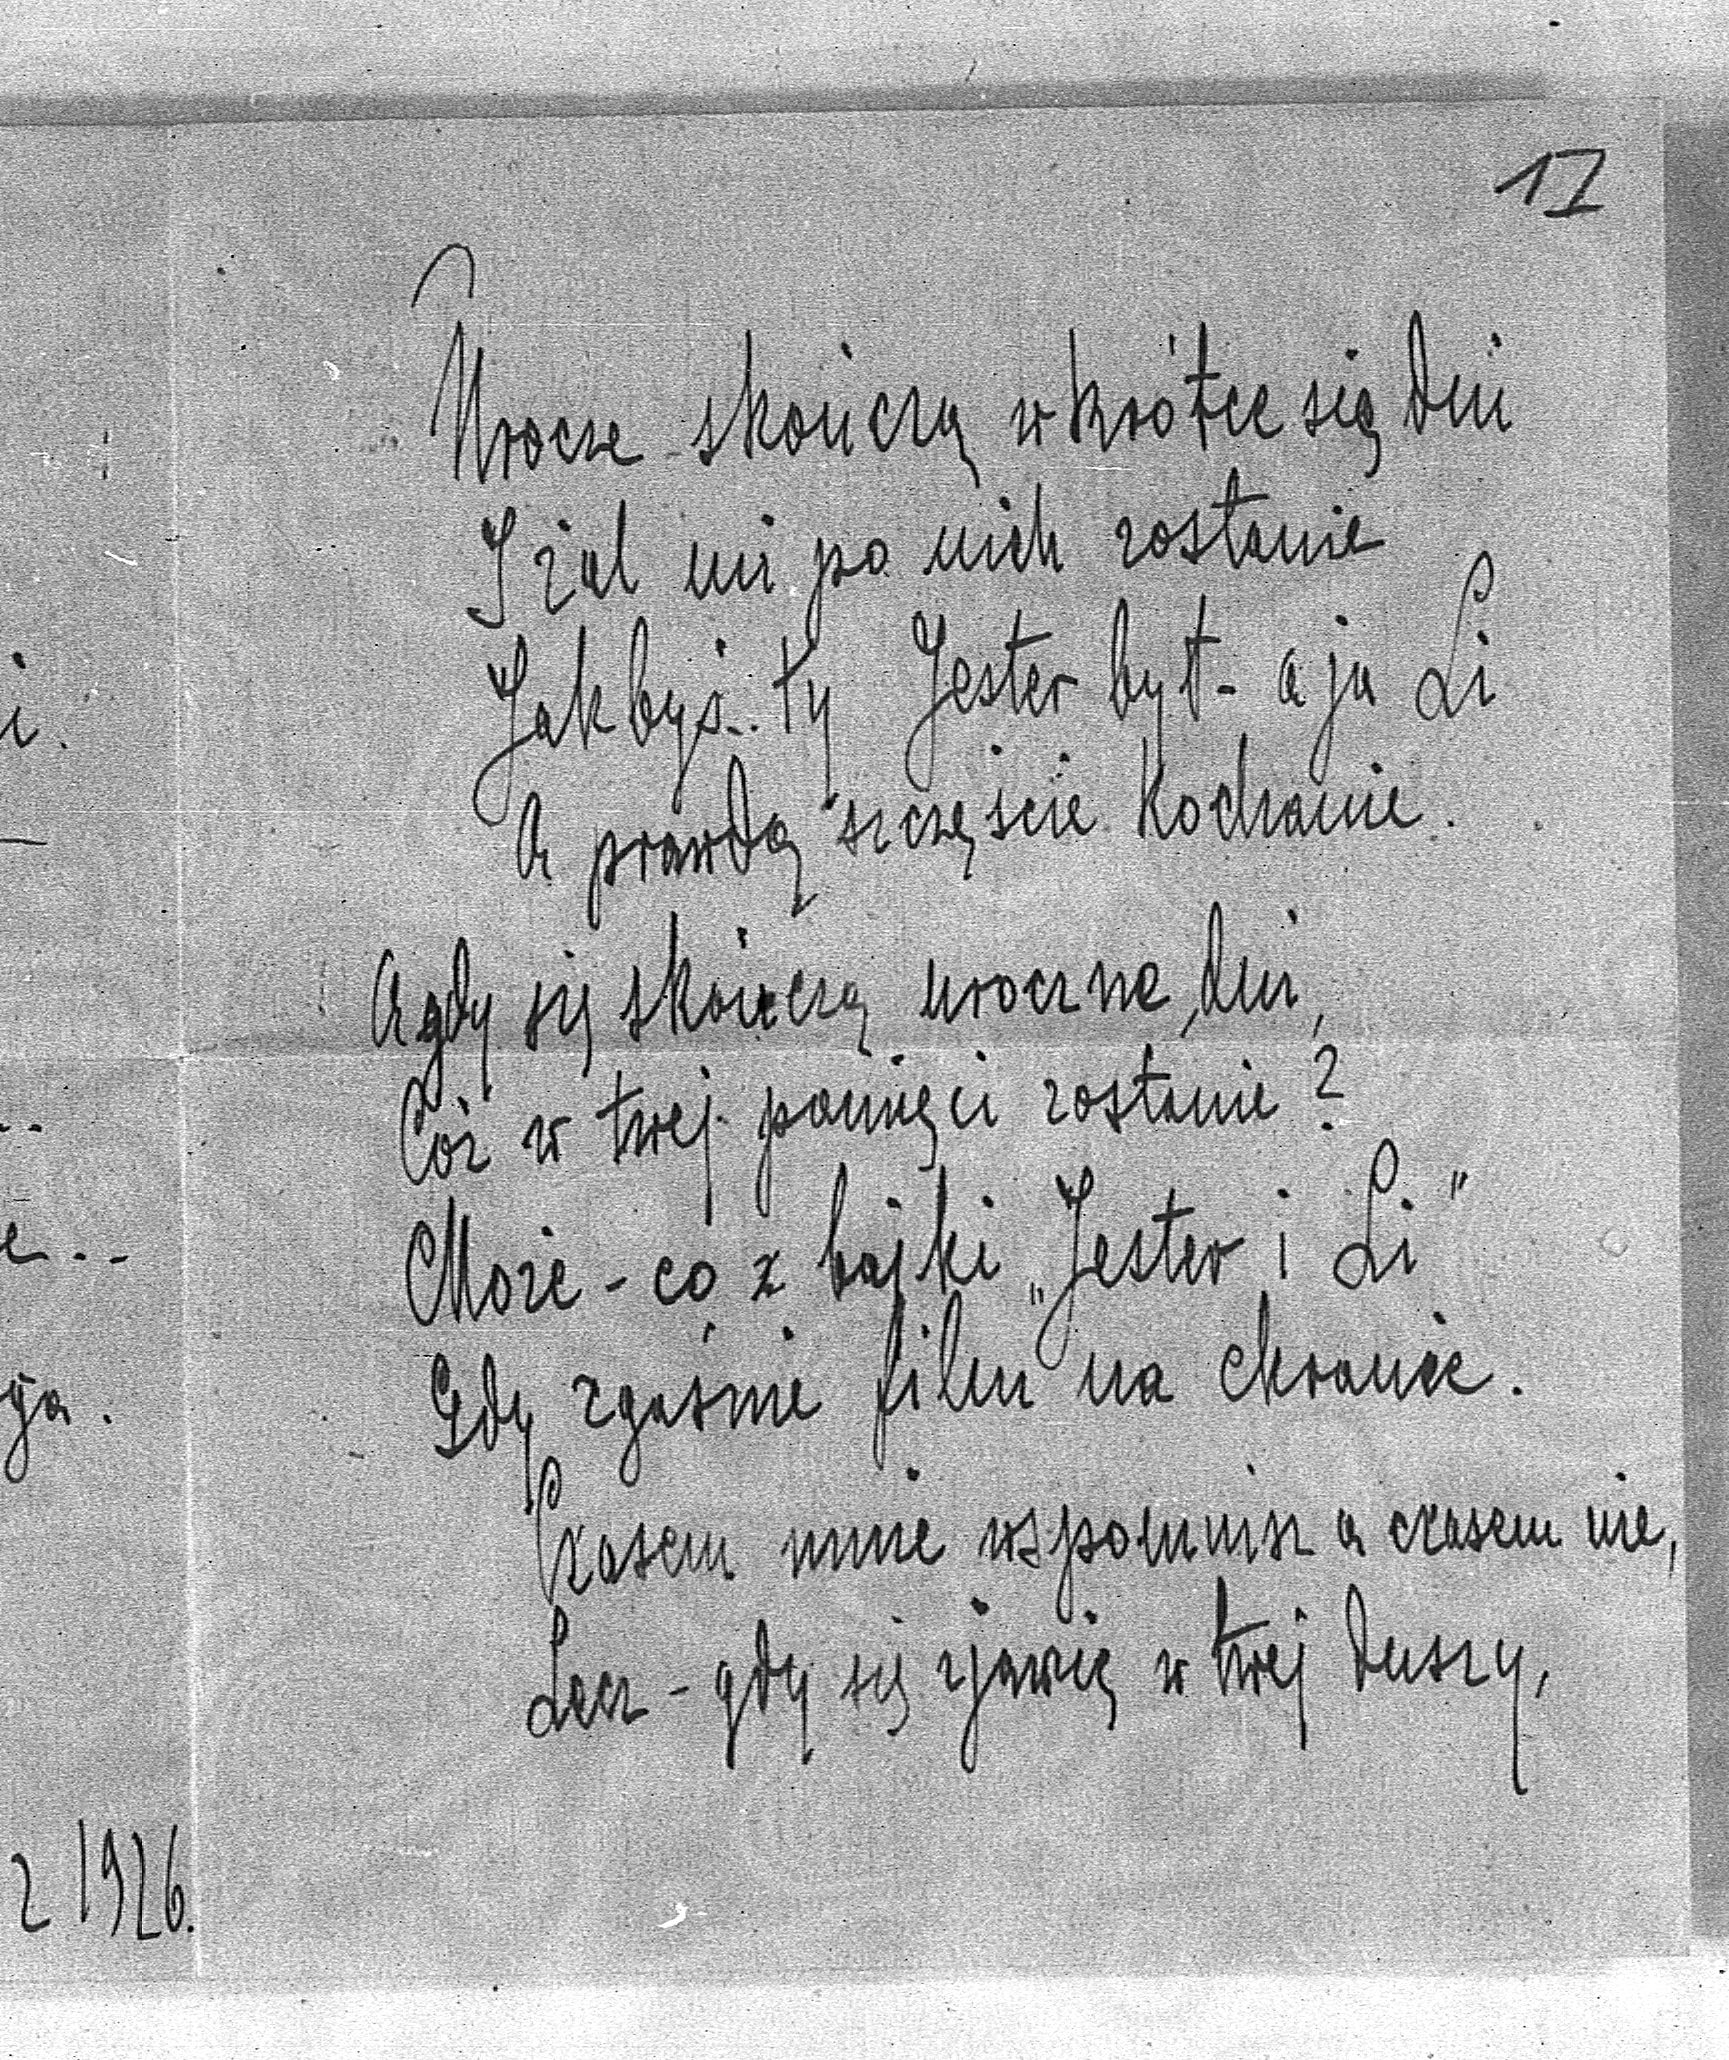 17
Urocze skończą wkrótce się dni
I żal mi po nich zostanie
Jakbyś.. ty Jester był - a ja Li
A prawdą szczęście kochanie.
A gdy się skończą uroczne, dni,
Cóż w twej pamięci zostanie?
Może - co z bajki „Jester i Li"
Gdy zgaśnie film na ekranie.
Czasem mnie wspomnisz a czasem nie,
Lecz - gdy się zjawię w twej duszy,
i.
e..
ya.
1926.